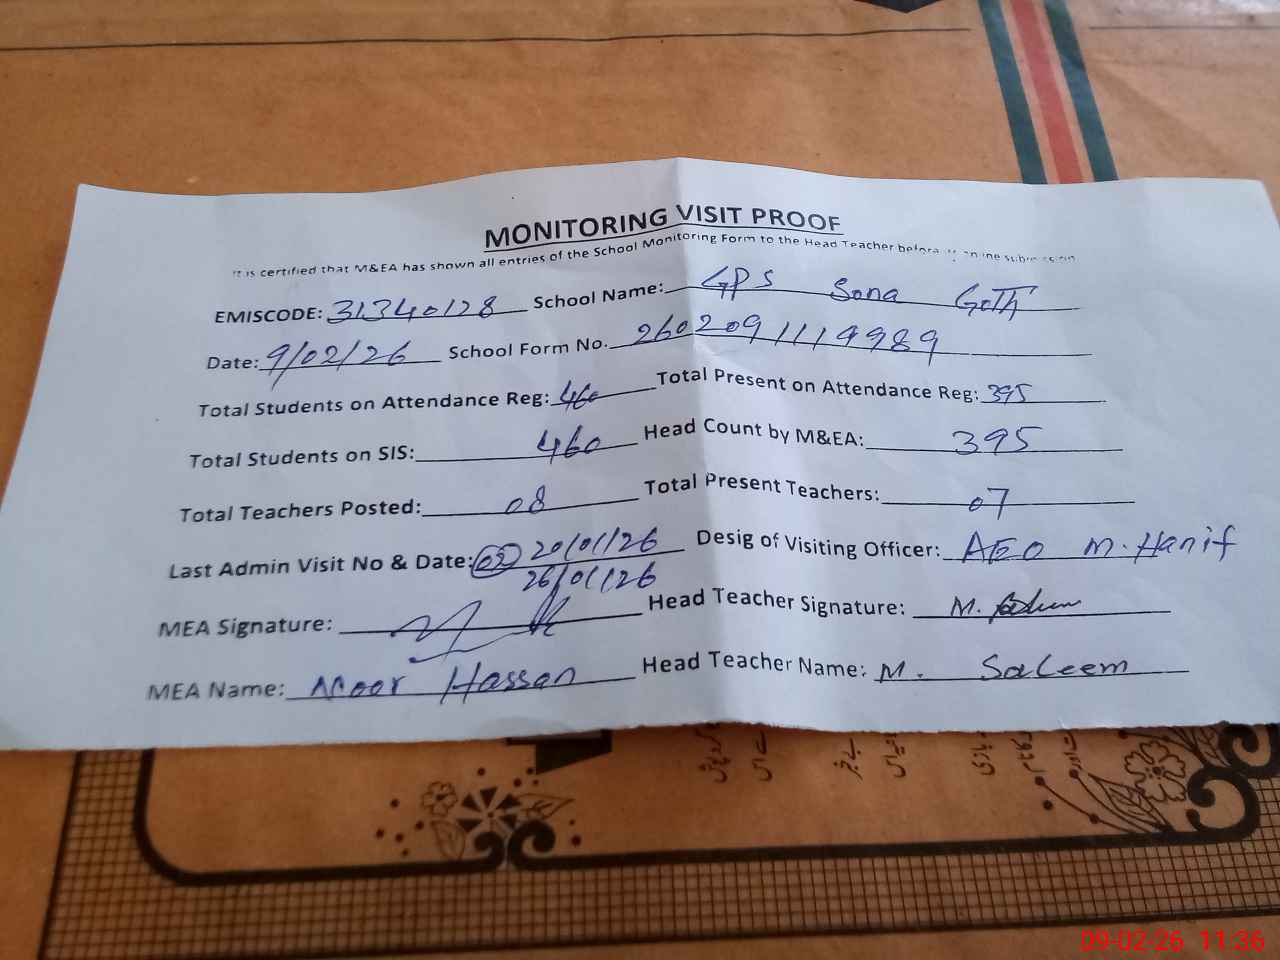 MONITORING VISIT PROOF
It is certified that M&EA has shown all entries of the School Monitoring Form to the Head Teacher before its online submission
EMISCODE: 31340128 School Name: GPS Sona Goth
Date: 9/02/26 School Form No. 2602091119989
Total Students on Attendance Reg: 460 Total Present on Attendance Reg: 395
Total Students on SIS: 460 Head Count by M&EA: 395
Total Teachers Posted: 08 Total Present Teachers: 07
Last Admin Visit No & Date: 02 20/01/26 Desig of Visiting Officer: AEO M. Hanif
26/01/26
MEA Signature: Head Teacher Signature: M.
MEA Name: Noor Hassan Head Teacher Name: M. Saleem
09-02-26 11:36